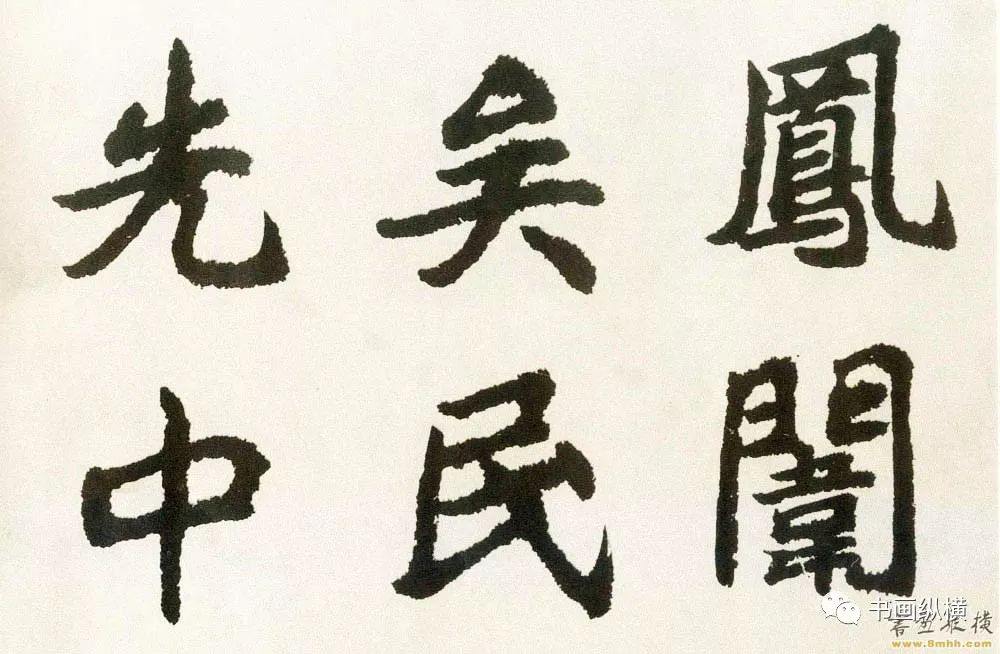 鳳闈
矣民
先中
书画纵横
書画纵横
www.8mhh.com